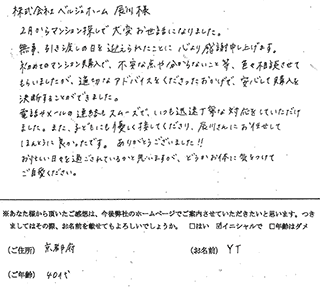 株式会社ベルジホーム 辰川様
2月からマンション探しで大変お世話になりました。
無事、引き渡しの日を迎えられたことに心より感謝申し上げます。
初めてのマンション購入で、不安な点や分からないこと等、色々相談させて
もらいましたが、適切なアドバイスをくださったおかげで、安心して購入を
決断することができました。
電話やメールの連絡もスムーズで、いつも迅速丁寧な対応をしていただけ
ました。また、子どもにも優しく接してくださり、辰川さんにお任せして
ほんとうに良かったです。ありがとうございました!!
お忙しい日々を過ごされているかと思いますが、どうかお体に気をつけて
ご自愛ください。
※あなた様から頂いたご感想は、今後弊社のホームページでご案内させていただきたいと思います。つき
ましてはその際、お名前を載せてもよろしいでしょうか。 □はい ☑イニシャルで □年齢はダメ
(ご住所) 京都府 (お名前) YT
(ご年齢) 40代